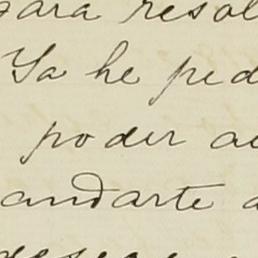 para resol
Ya he ped
poder ac
andarte a